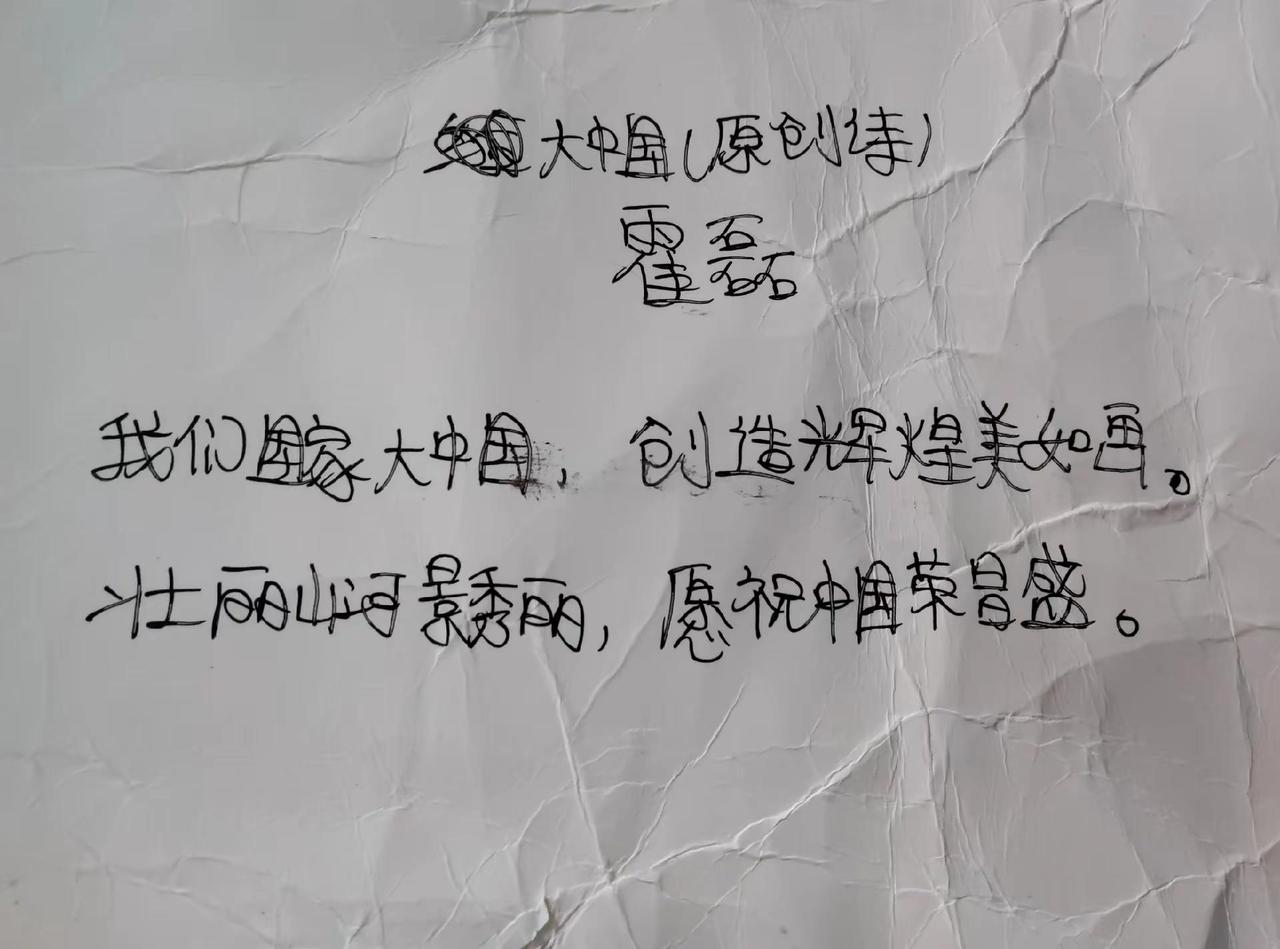 大中国(原创诗)
霍磊
我们国家大中国，创造辉煌美如画。
壮丽山河景秀丽，愿祝中国荣昌盛。